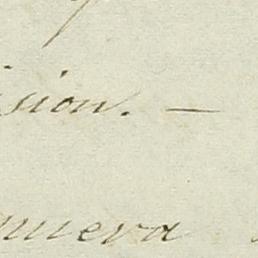 ision. —
nueva